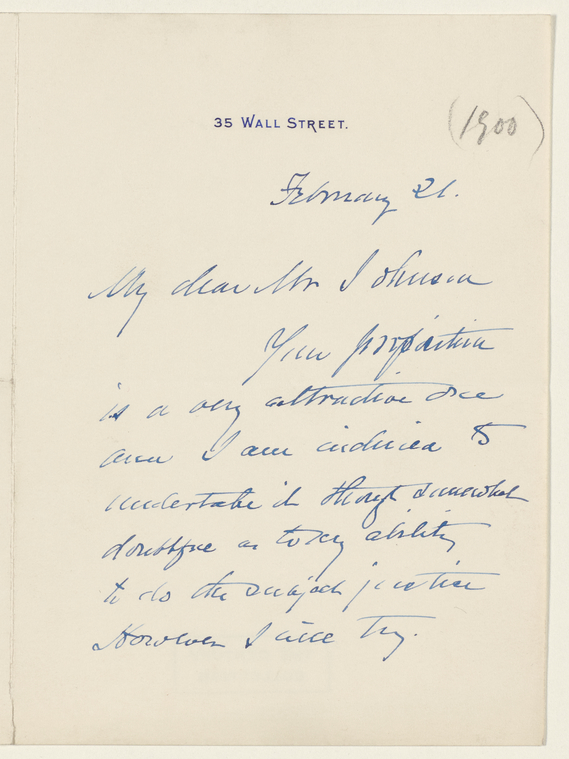 35 WALL STREET.
(1900)
February 21.
My dear Mr Johnson
Your proposition
is a very attractive one
and I am inclined to
undertake it though somewhat
doubtful as to my ability
to do the subject justice
However I will try.